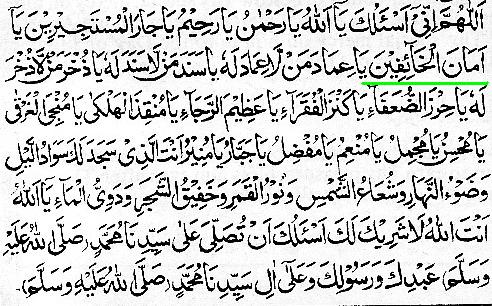 اَللّٰهُمَّ اِنِّیْٓ اَسْئَلُكَ یَآ اَللّٰهُ یَارَحْمٰنُ یَارَحِیْمُ یَاجَارَ الْمُسْتَجِیْرِیْنَ یَآ
اَمَانَ الْخَآئِفِیْنَ یَاعِمَادَ مَنْ لَّاعِمَادَ لَهٗ یَاسَنَدَ مَنْ لَّاسَنَدَ لَهٗ یَاذُخْرَ مَنْ لَّاذُخْرَ
لَهٗ یَاحِرْزَ الضُّعَفَآءِ یَاكَنْزَ الْفُقَرَآءِ یَاعَظِیْمَ الرَّجَآءِ یَامُنْقِذَ الْهَلْكٰی یَامُنْجِیَ الْغَرْقٰی
یَامُحْسِنُ یَامُجْمِلُ یَامُنْعِمُ یَامُفْضِلُ یَاجَبَّارُ یَامُنِیْرُ اَنْتَ الَّذِیْ سَجَدَ لَكَ سَوَادُ الَّیْلِ
وَضَوْءُ النَّهَارِ وَشُعَاعُ الشَّمْسِ وَنُوْرُ الْقَمَرِ وَخَفِیْقُ الشَّجَرِ وَدَوِیُّ الْمَآءِ یَآ اَللّٰهُ
اَنْتَ اللّٰهُ لَاشَرِیْكَ لَكَ اَسْئَلُكَ اَنْ تُصَلِّیَ عَلٰی سَیِّدِنَا مُحَمَّدٍ (صَلَّی اللّٰهُ عَلَیْهِ
وَسَلَّمَ) عَبْدِكَ وَرَسُوْلِكَ وَعَلٰٓی اٰلِ سَیِّدِنَا مُحَمَّدٍ (صَلَّی اللّٰهُ عَلَیْهِ وَسَلَّمَ)۔